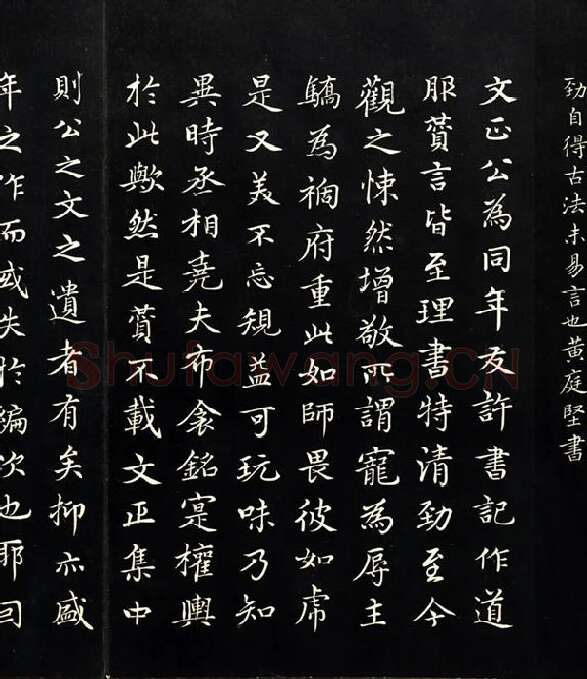 勁自得古法未易言也黄庭堅書
文正公為同年友許書記作道
服賛言皆至理書特清勁至今
觀之悚然增敬所謂寵為辱主
驕為禍府重此如師畏彼如虎
是又美不忘規益可玩味乃知
異時丞相堯夫布衾銘寔權輿
於此歟然是賛不載文正集中
則公之文之遺者有矣抑亦盛
年之作而或失於編次也耶曰
Shufawang.CN